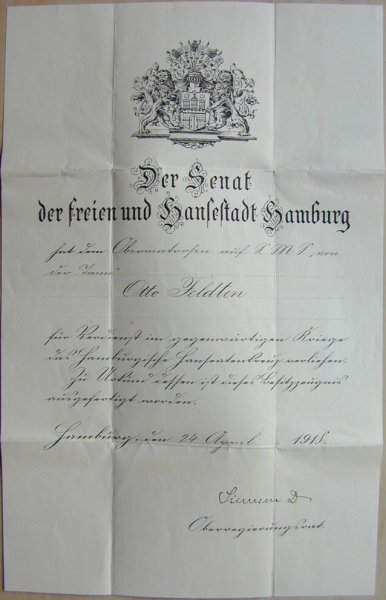 Der Senat
der freien und Hansestadt Hamburg
hat dem Obermatrosen auf S. M. S. „von
der Tann“
Otto Feldten
für Verdienst im gegenwärtigen Kriege
das Hamburgische Hanseatenkreuz verliehen.
Zu Urkund dessen ist dieses Besitzzeugnis
ausgefertigt worden.
Hamburg, den 24 April 1918.
Oberregierungsrat.